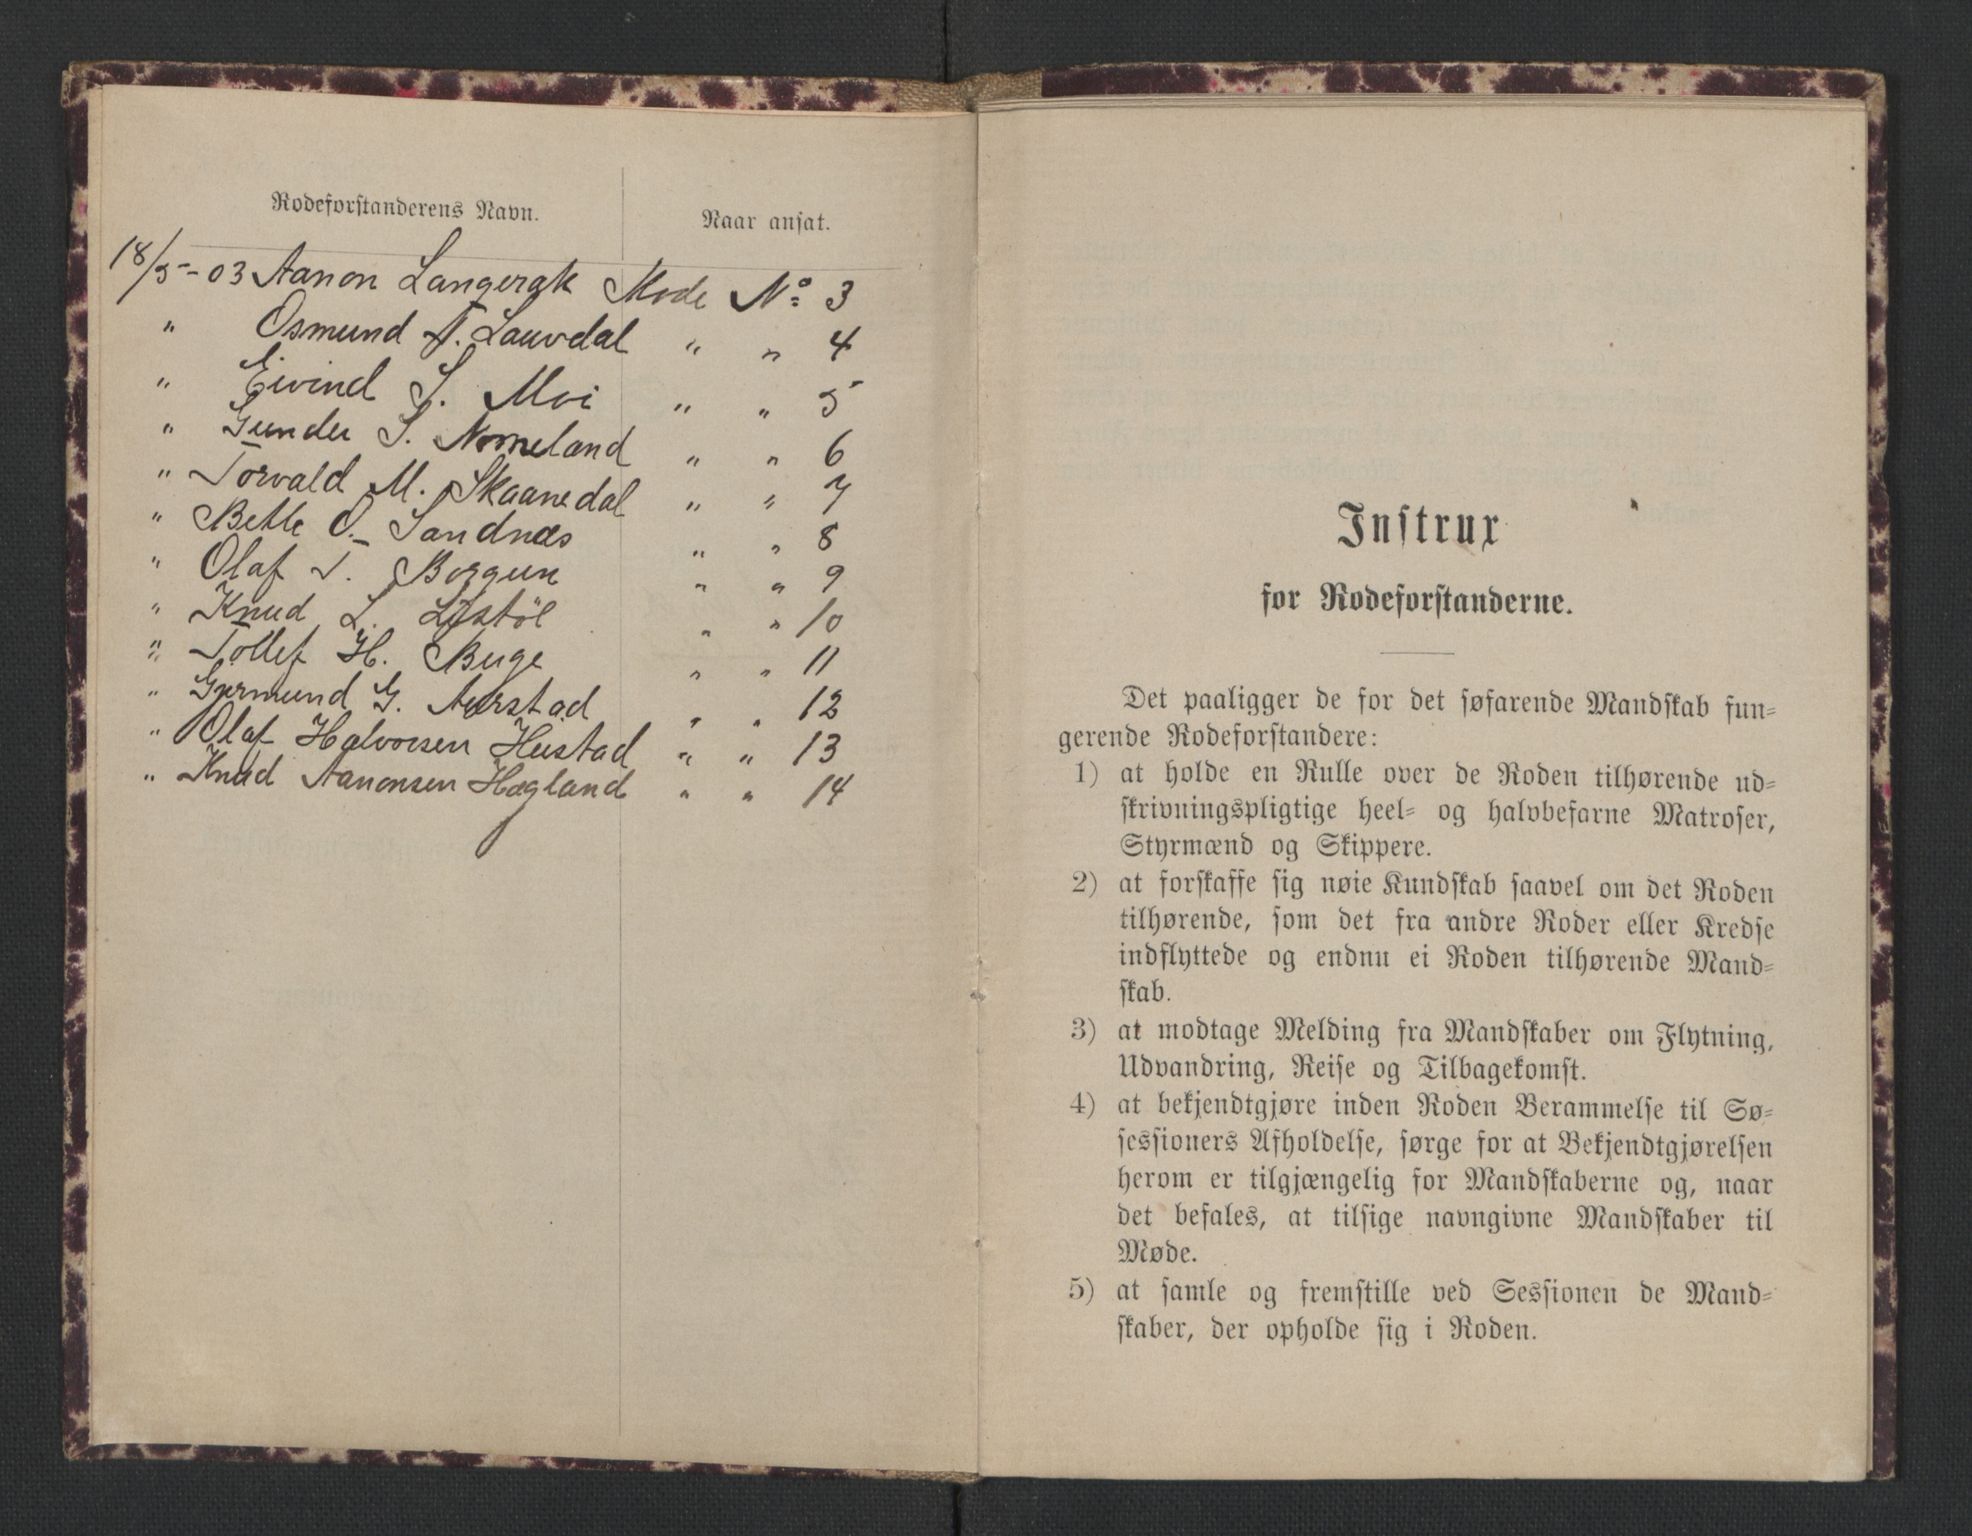 Rodeforstanderens Navn.
Naar ansat.
18/5-03 Aanon Langerak Rode No 3
" Osmund T. Lauvdal " " 4
" Eivind S. Moi " " 5
" Gunder S. Nomeland " " 6
" Torvald M. Skaanedal " " 7
" Betle O. Sandnæs " " 8
" Olaf T. Borgun " " 9
" Knud L. Løstøl " " 10
" Tollef H. Buge " " 11
" Gurmund G. " " 12
" Olaf Halvorsen Hustad " " 13
" Knud Aanonsen Hægland " " 14
Instrux
for Rodeforstanderne.
Det paaligger de for det søfarende Mandskab fun-
gerende Rodeforstandere:
1) at holde en Rulle over de Roden tilhørende ud-
skrivningspligtige heel- og halvbefarne Matroser,
Styrmænd og Skippere.
2) at forskaffe sig nøie Kundskab saavel om det Roden
tilhørende, som det fra andre Roder eller Kredse
indflyttede og endnu ei Roden tilhørende Mand-
skab.
3) at modtage Melding fra Mandskaber om Flytning,
Udvandring, Reise og Tilbagekomst.
4) at bekjendtgjøre inden Roden Berammelse til Sø-
sessioners Afholdelse, sørge for at Bekjendtgjørelsen
herom er tilgjængelig for Mandskaberne og, naar
det befales, at tilsige navngivne Mandskaber til
Møde.
5) at samle og fremstille ved Sessionen de Mand-
skaber, der opholde sig i Roden.